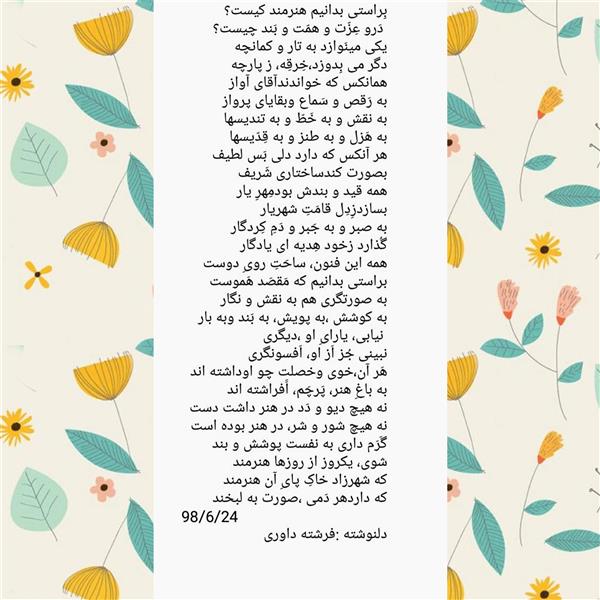 بِراستی بدانیم هنرمند کیست؟
دَرو عِزّت و همّت و بَند چیست؟
یکی مینَوازد به تار و کمانچه
دگر می بِدوزد،خِرقِه، ز پارچه
همانکس که خواندندآقای آواز
به رَقص و سَماع وبقایای پرواز
به نقش و به خَطّ و به تندیسها
به هَزل و به طنز و به قِدّیسها
هر آنکس که دارد دلی بَس لطیف
بصورت کندساختاری شَریف
همه قید و بندش بودمِهرِ یار
بسازدزِدِل قامَتِ شهریار
به صبر و به جَبر و دَمِ کِردگار
گُذارد زخود هِدیه ای یادگار
همه این فنون، ساحَتِ رویِ دوست
براستی بدانیم که مَقصَد هَموست
به صورتگری هم به نقش و نگار
به کوشش ،به پویش، به بَند وبه بار
نیابی، یارای او ،دیگری
نبینی جُز اَز او، اَفسونگری
هَر آن،خوی وخصلت چو اوداشته اند
به باغِ هنر، پَرچَم، أفراشته اند
نه هیچ دیو و دَد در هنر داشت دست
نه هیچ شور و شر، در هنر بوده است
گَرَم داری به نفست پوشش و بند
شوی، یکروز از روزها هنرمند
که شهرزاد خاکِ پایِ آن هنرمند
که داردهر دَمی ،صورت به لبخند
98/6/24
دلنوشته :فرشته داوری